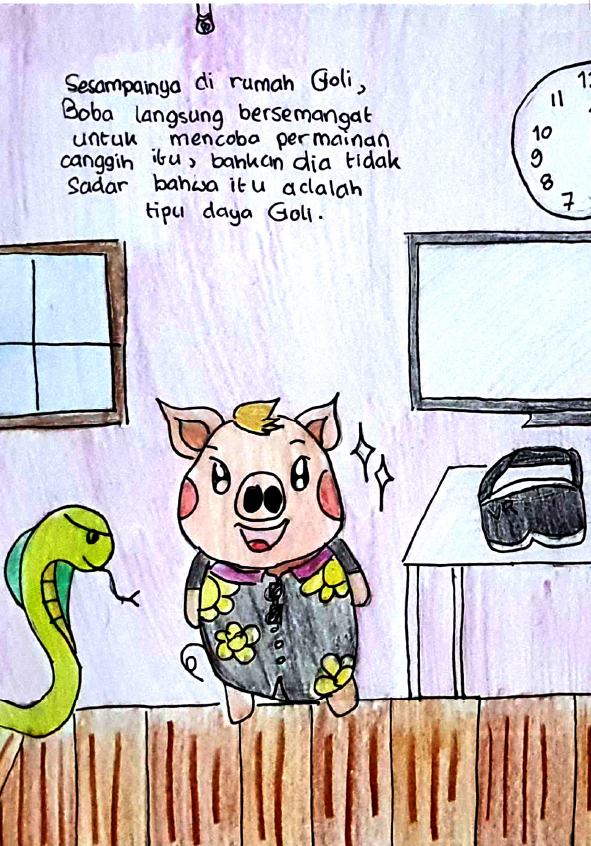 Sesampainya di rumah Goli,
Boba langsung bersemangat
untuk mencoba permainan
canggih itu, bahkan dia tidak
Sadar bahwa itu adalah
tipu daya Goli.
11
10
9
8
7
VR